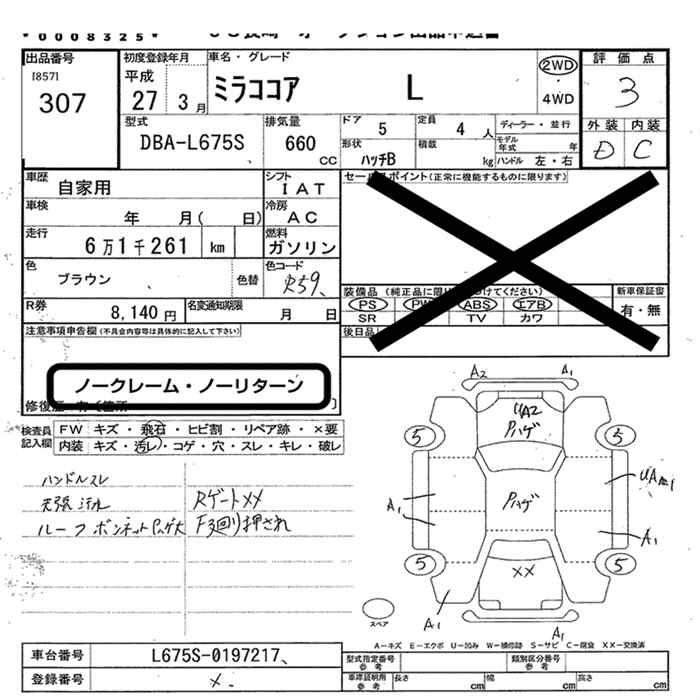 *0008325*
出品番号
[857]
307
初度登録年月
平成
27 3月
車名・グレード
ミラココア L
2WD
・
4WD
評価点
3
外装 内装
D C
型式
DBA-L675S
排気量
660
CC
ドア 5
定員 4 人
形状 ハッチB
積載 kg
ディーラー・並行
モデル年式 年
ハンドル 左・右
車歴
自家用
シフト
IAT
車検
年 月( 日)
冷房
AC
走行
6万1千261 km
燃料
ガソリン
色
ブラウン
色替
色コード
R59
R券
8,140円
名変通知期限
月 日
セールスポイント(正常に機能するものに限ります)
装備品
PS PW ABS エアB
SR TV カワ
新車保証書
有・無
後日品
注意事項申告欄(不具合内容等は具体的に記入して下さい)
ノークレーム・ノーリターン
検査員
記入欄
FW キズ・飛石・ヒビ割・リペア跡・×要
内装 キズ・汚レ・コゲ・穴・スレ・キレ・破レ
ハンドルスレ
天張汚れ
ルーフ ボンネットPハゲ大
Rゲート××
F廻り押され
A2 A1
UA2
Pハゲ
5 5
Pハゲ
A1
A1
××
5 5
A1 A1
スペア
A－キズ E－エクボ U－凹み W－補修跡 S－サビ C－腐食 XX－交換済
車台番号
L675S-0197217
登録番号
×
型式指定番号
参考
類別区分番号
参考
車庫証明用
参考
長さ cm
幅 cm
高さ cm